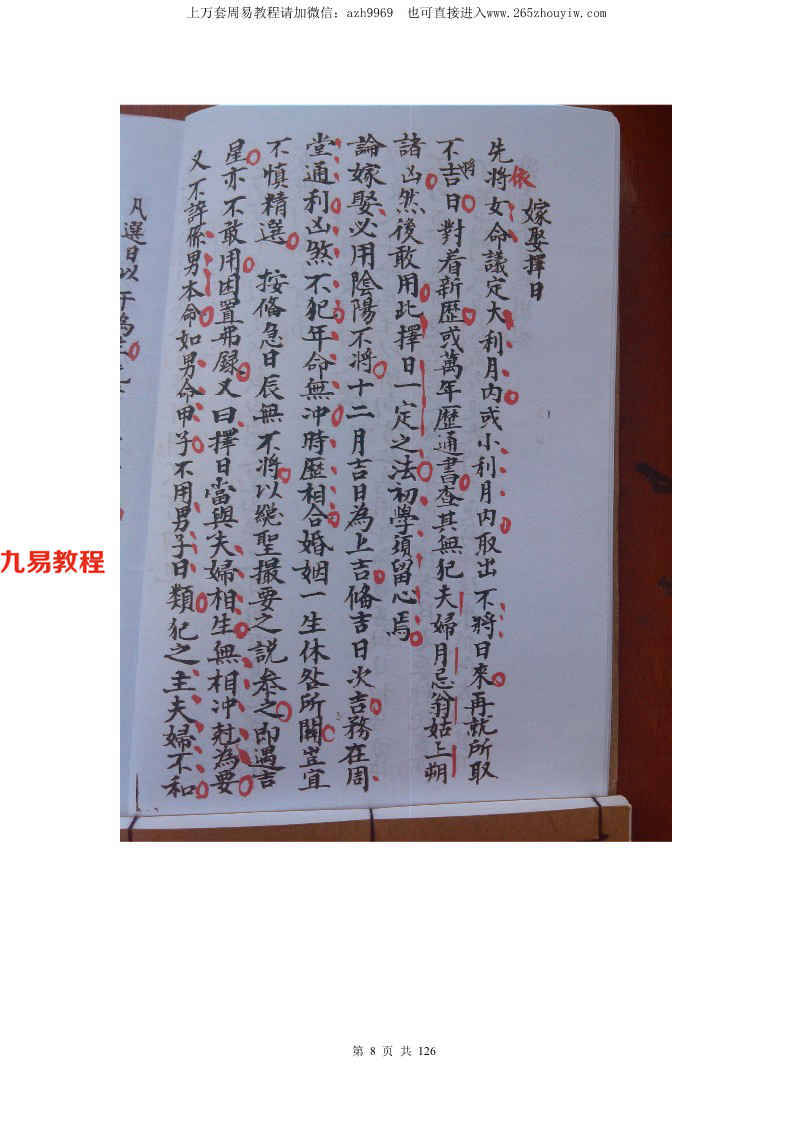 上万套周易教程请加微信：azh9969　也可直接进入www.265zhouyiw.com
嫁娶擇日
依
先將女命議定大利月內或小利月內取出不將日來再就所取
不將吉日對着新歷或萬年歷通書查其無犯夫婦月忌翁姑上朔
諸凶然後敢用此擇日一定之法初學須留心焉
論嫁娶必用陰陽不將十二月吉日為上吉俻吉日次吉務在周
堂通利凶煞不犯年命無沖時歷相合婚姻一生休咎所關豈宜
不慎精選　按俻急日辰無不將以緫聖撮要之說叅之即遇吉
星亦不敢用因置弗録又曰擇日當與夫婦相生無相沖尅為要
又不許係男本命如男命甲子不用男子日類犯之主夫婦不和
凡選日以干為
九易教程
第 8 页 共 126